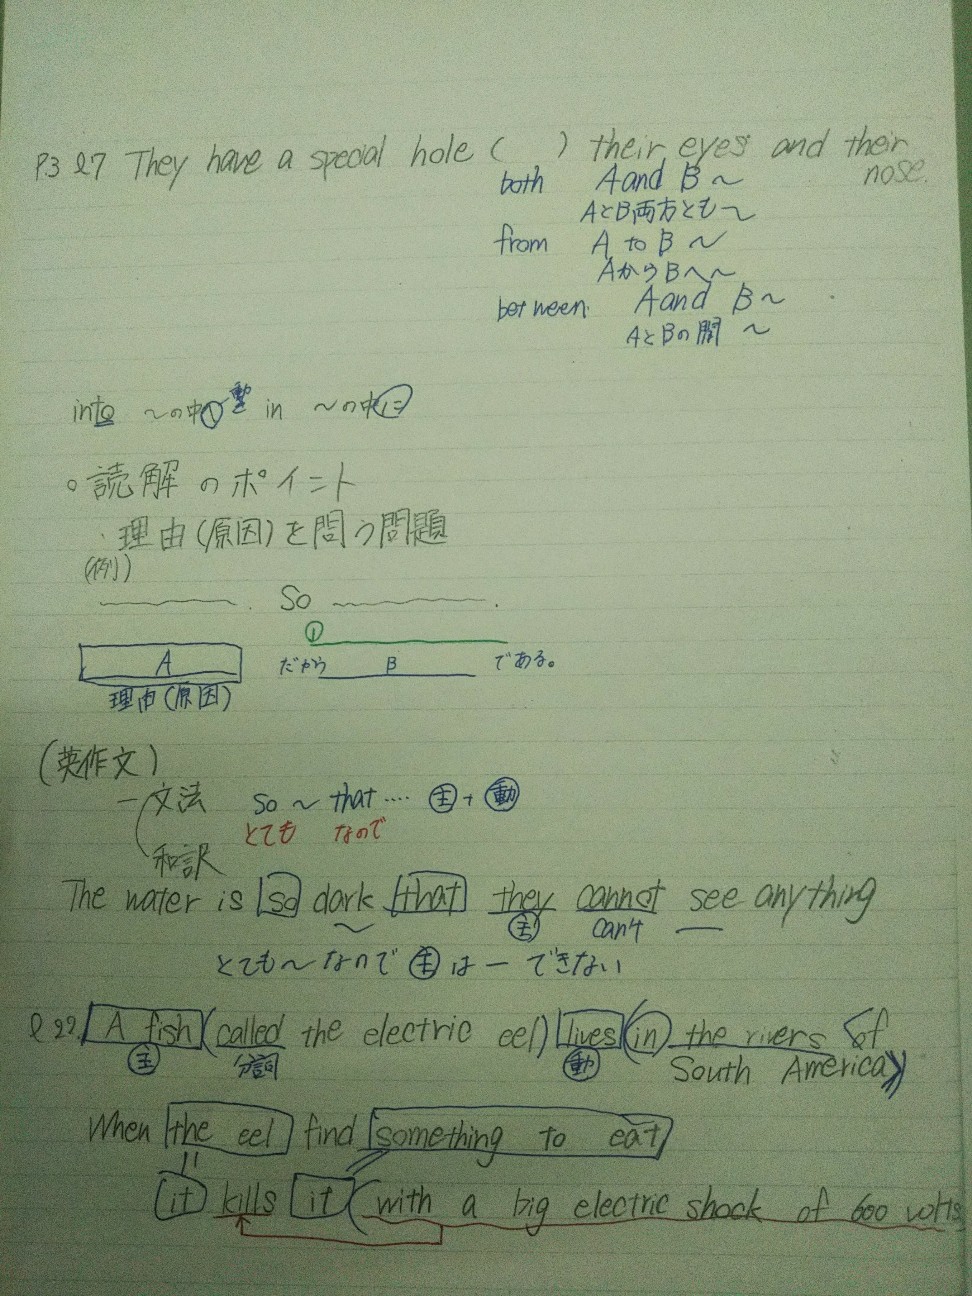 P.3 l7 They have a special hole ( ) their eyes and their nose.
both A and B ~
AとB両方とも~
from A to B ~
AからBへ~
between A and B ~
AとBの間 ~
into ~の中へ 動 in ~の中に
○読解のポイント
・理由(原因)を問う問題
(例)
. So .
①
A だから B である。
理由(原因)
(英作文)
文法 so ~ that .... 主 + 動
とても なので
和訳
The water is so dark that they cannot see anything
主 can't
とても~なので 主 は ー できない
l 22. A fish (called the electric eel) lives in the rivers of South America
主 分詞 動
When the eel find something to eat
it kills it (with a big electric shock of 600 volts